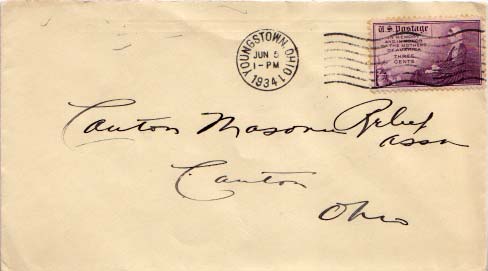 YOUNGSTOWN, OHIO 1
JUN 5
1-PM
1934
U.S. Postage
IN MEMORY
AND IN HONOR
OF THE MOTHERS
OF AMERICA
THREE
CENTS
Canton Masonic Relief
assn
Canton
Ohio